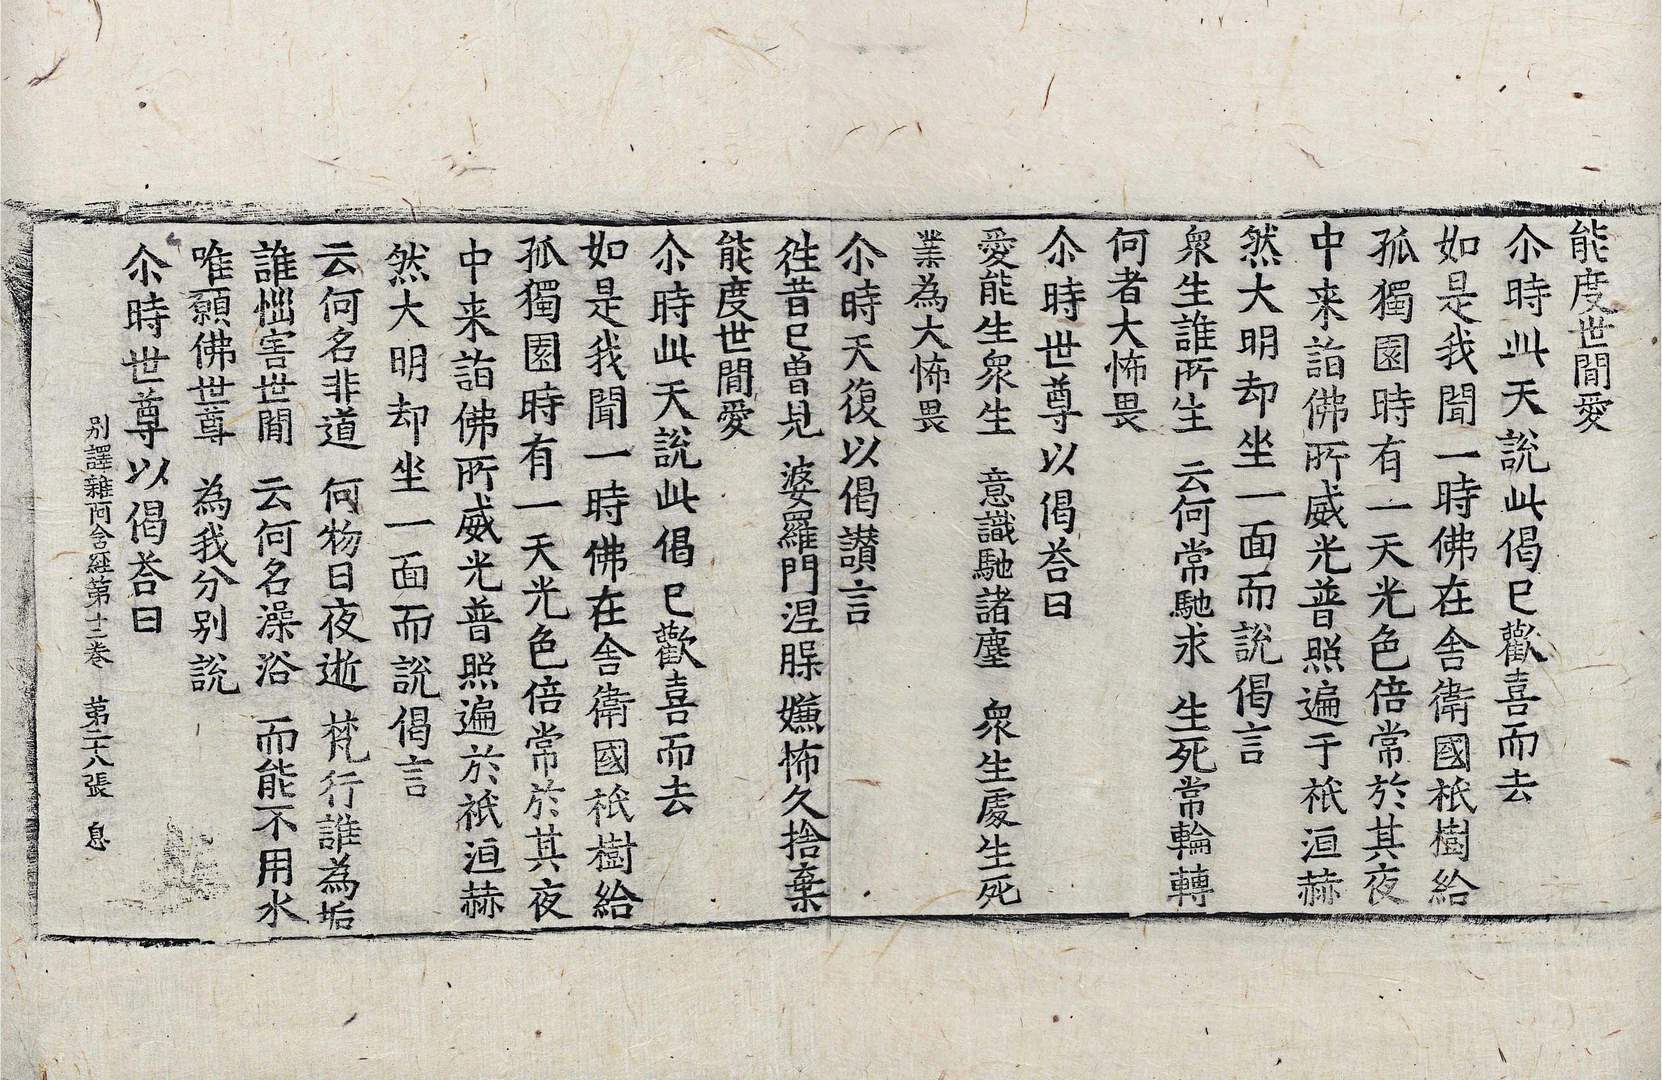 能度世間愛
尒時此天說此偈已歡喜而去
如是我聞一時佛在舍衛國祇樹給
孤獨園時有一天光色倍常於其夜
中来詣佛所威光普照遍于祇洹赫
然大明却坐一面而說偈言
衆生誰所生 云何常馳求 生死常輪轉
何者大怖畏
尒時世尊以偈荅曰
愛能生衆生 意識馳諸塵 衆生處生死
業為大怖畏
尒時天復以偈讃言
徃昔已曽見 婆羅門涅𦙁 嫌怖久捨棄
能度世間愛
尒時此天說此偈已歡喜而去
如是我聞一時佛在舍衛國祇樹給
孤獨園時有一天光色倍常於其夜
中来詣佛所威光普照遍於祇洹赫
然大明却坐一面而說偈言
云何名非道 何物日夜逝 梵行誰為垢
誰惱害世間 云何名澡浴 而能不用水
唯願佛世尊 為我分别說
尒時世尊以偈荅曰
别譯雜阿含経第十二卷 第二十八張 息